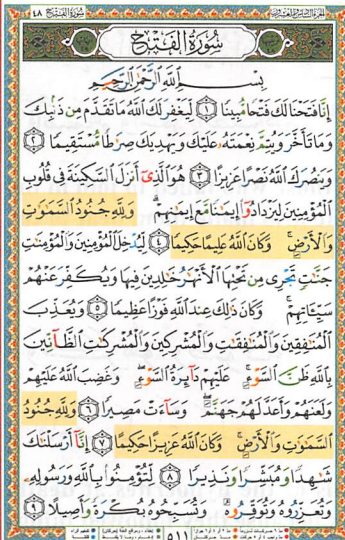 سُورَةُ الفَتْحِ ٤٨
سُورَةُ الفَتْحِ
بِسْمِ اللَّهِ الرَّحْمَٰنِ الرَّحِيمِ
إِنَّا فَتَحْنَا لَكَ فَتْحًا مُّبِينًا ١ لِّيَغْفِرَ لَكَ اللَّهُ مَا تَقَدَّمَ مِن ذَنۢبِكَ
وَمَا تَأَخَّرَ وَيُتِمَّ نِعْمَتَهُۥ عَلَيْكَ وَيَهْدِيَكَ صِرَٰطًا مُّسْتَقِيمًا ٢
وَيَنصُرَكَ اللَّهُ نَصْرًا عَزِيزًا ٣ هُوَ الَّذِىٓ أَنزَلَ السَّكِينَةَ فِى قُلُوبِ
الْمُؤْمِنِينَ لِيَزْدَادُوٓا۟ إِيمَٰنًا مَّعَ إِيمَٰنِهِمْ ۗ وَلِلَّهِ جُنُودُ السَّمَٰوَٰتِ
وَالْأَرْضِ ۚ وَكَانَ اللَّهُ عَلِيمًا حَكِيمًا ٤ لِّيُدْخِلَ الْمُؤْمِنِينَ وَالْمُؤْمِنَٰتِ
جَنَّٰتٍ تَجْرِى مِن تَحْتِهَا الْأَنْهَٰرُ خَٰلِدِينَ فِيهَا وَيُكَفِّرَ عَنْهُمْ
سَيِّـَٔاتِهِمْ ۚ وَكَانَ ذَٰلِكَ عِندَ اللَّهِ فَوْزًا عَظِيمًا ٥ وَيُعَذِّبَ
الْمُنَٰفِقِينَ وَالْمُنَٰفِقَٰتِ وَالْمُشْرِكِينَ وَالْمُشْرِكَٰتِ الظَّآنِّينَ
بِاللَّهِ ظَنَّ السَّوْءِ ۚ عَلَيْهِمْ دَآئِرَةُ السَّوْءِ ۖ وَغَضِبَ اللَّهُ عَلَيْهِمْ
وَلَعَنَهُمْ وَأَعَدَّ لَهُمْ جَهَنَّمَ ۖ وَسَآءَتْ مَصِيرًا ٦ وَلِلَّهِ جُنُودُ
السَّمَٰوَٰتِ وَالْأَرْضِ ۚ وَكَانَ اللَّهُ عَزِيزًا حَكِيمًا ٧ إِنَّآ أَرْسَلْنَٰكَ
شَٰهِدًا وَمُبَشِّرًا وَنَذِيرًا ٨ لِّتُؤْمِنُوا۟ بِاللَّهِ وَرَسُولِهِۦ
وَتُعَزِّرُوهُ وَتُوَقِّرُوهُ ۚ وَتُسَبِّحُوهُ بُكْرَةً وَأَصِيلًا ٩
٥١١